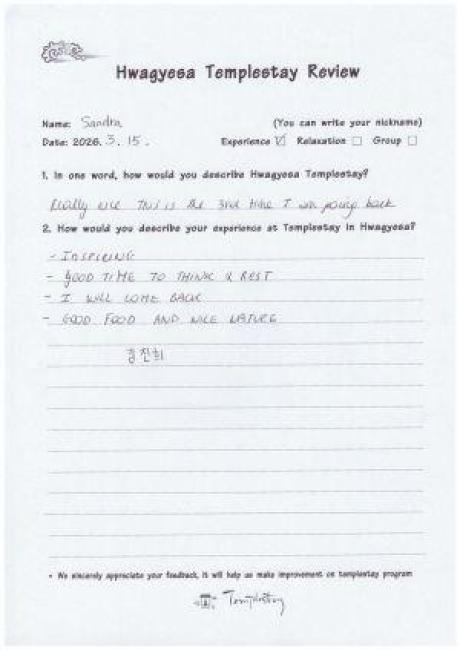 Hwagyesa Templestay Review
Name: Sandra (You can write your nickname)
Date: 2026. 3. 15. Experience ☑ Relaxation ☐ Group ☐
1. In one word, how would you describe Hwagyesa Templestay?
Really nice This is the 3rd time I am going back
2. How would you describe your experience at Templestay in Hwagyesa?
- INSPIRING
- GOOD TIME TO THINK & REST
- I WILL COME BACK
- GOOD FOOD AND NICE NATURE
홍진희
• We sincerely appreciate your feedback, it will help us make improvement on templestay program
Templestay